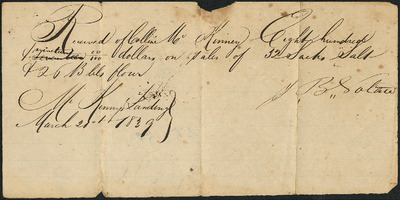 Received of Collin Mc Kenney Eighty hundred
dollars on sales of 32 Sacks Salt
& 26 Bbls flour
Mc Kenneys Landing
March 21st 1839
J. B.